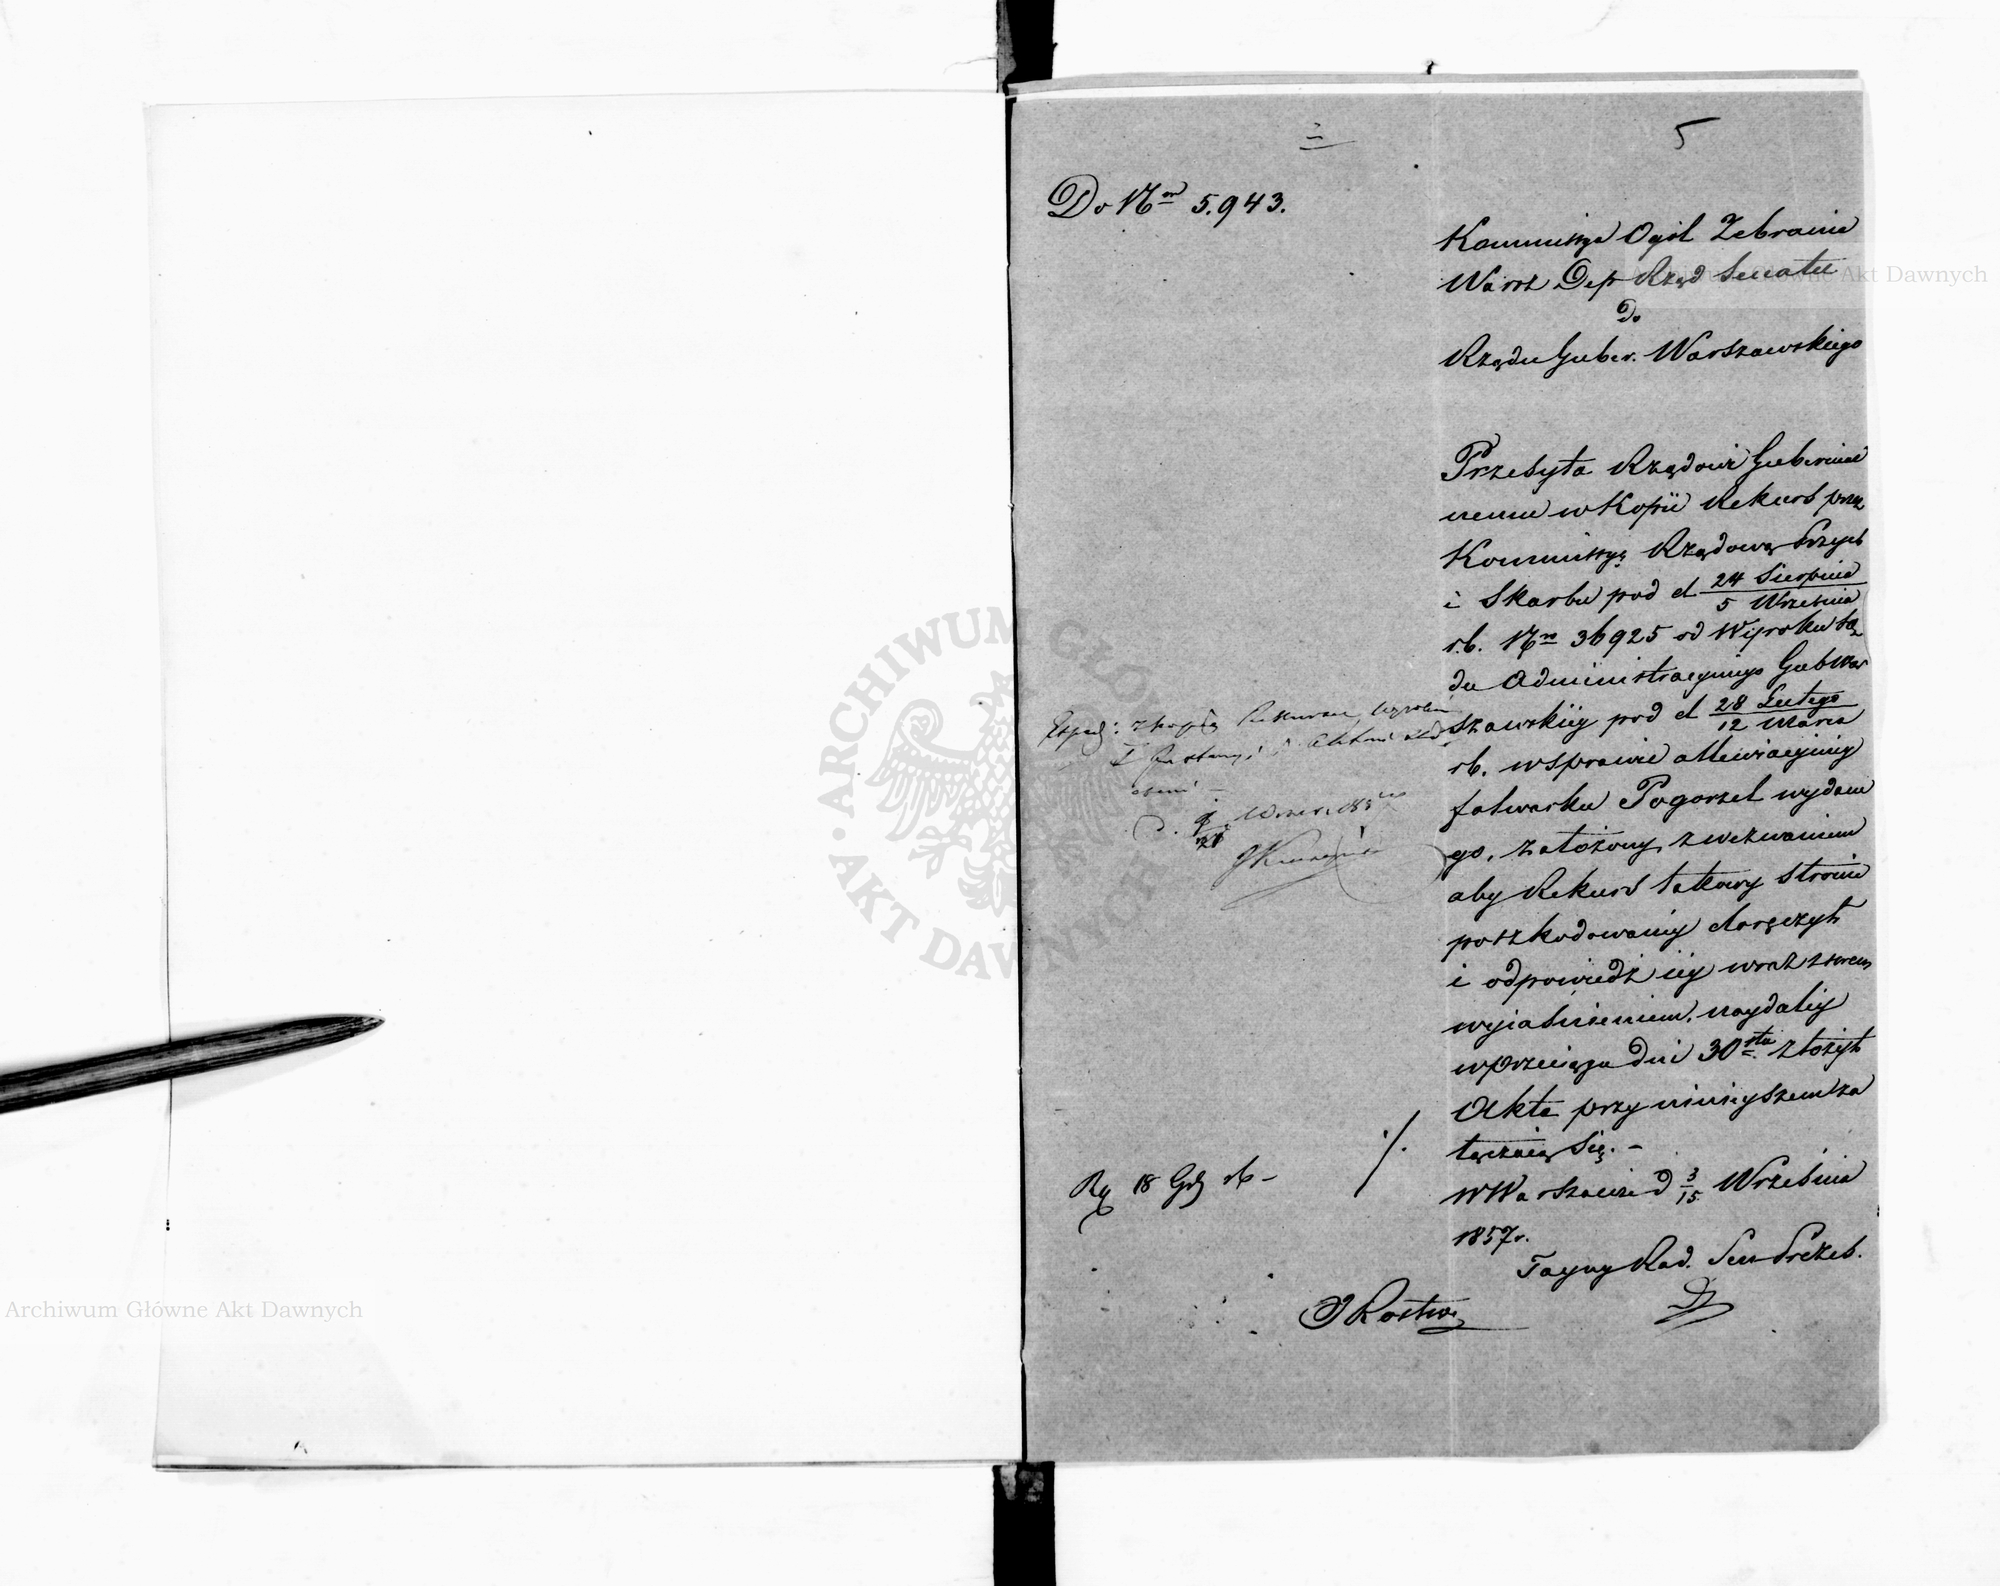 5
Do Nrn 5.943.
Kommissya Ogól Zebrania
Warsz Dep Rząd Senatu
Do
Rządu Guber. Warszawskiego
Przesyła Rządowi Gubernial
nemu w Kopii Rekurs przez
Kommissyę Rządową Przych
i Skarbu pod d 24 Sierpnia
5 Września
r.b. Nrn 36925 od Wyroku Są
du Administracyjnego Gub War
szawskiéy pod d 28 Lutego
12 Marca
rb. w sprawie allewiacyjnéy
folwarku Pogorzel wydane
go, założony, z wezwaniem
aby Rekurs takowy Stronie
poszkodowanéy doręczył
i odpowiedź iéy wraz z swem
wyiaśnieniem, naydaléy
w przeciągu dni 30stu złożył
Akta przy ninieyszem za
łączaią Się. –
w Warszawie d 3/15 Września
1857r.
Tayny Rad. Sen Prezes.
Rg 18 Gdy rb –
Archiwum Główne Akt Dawnych
Archiwum Główne Akt Dawnych
ARCHIWUM GŁÓWNE
AKT DAWNYCH